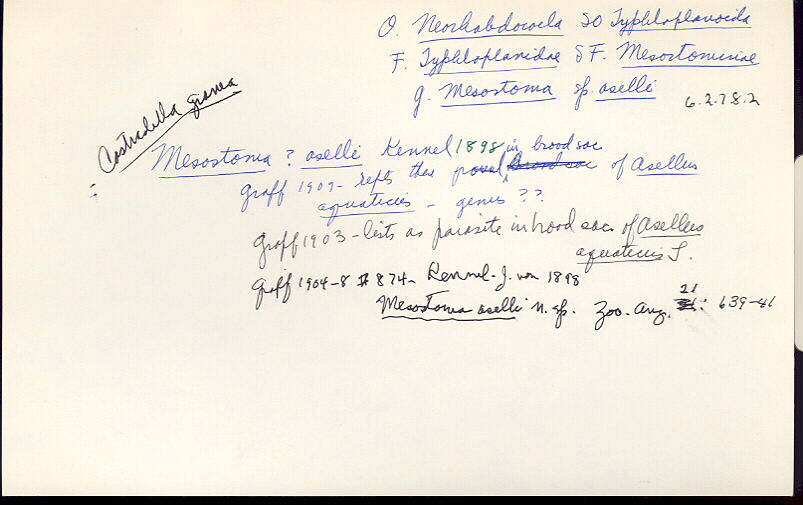 O. Neorhabdocoela SO Typhloplanoida
F. Typhloplanidae SF. Mesostominae
g. Mesostoma sp. aselli
6.2.7.8.2
= Castradella granea
Mesostoma ? aselli Kennel 1898 in brood sac
Graff 1909 - repts this brood sac of Asellus
aquaticus - genus ??
Graff 1903 - lists as parasite in brood sac of Asellus
aquaticus L.
Graff 1904-8 # 874 - Kennel - J. von 1898
Mesostoma aselli n. sp. Zoo. Anz. 21: 639-41